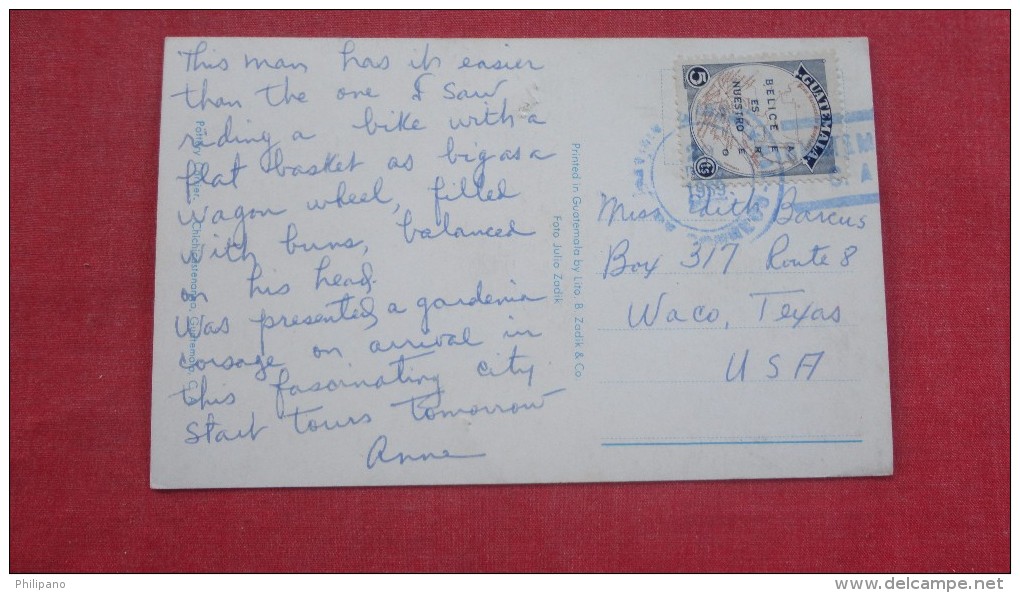 This man has it easier
than the one I saw
riding a bike with a
flat basket as big as a
wagon wheel, filled
with buns, balanced
on his head.
Was presented a gardenia
corsage on arrival in
this fascinating city
Start tours tomorrow
Anne
Chichicastenango, Guatemala, C.
Printed in Guatemala by Lito. B. Zadik & Co.
Foto Julio Zadik
GUATEMALA
BELICE
ES
NUESTRO
5
1969
Miss Edith Barcus
Box 317 Route 8
Waco, Texas
USA
Philipano
www.delcampe.net